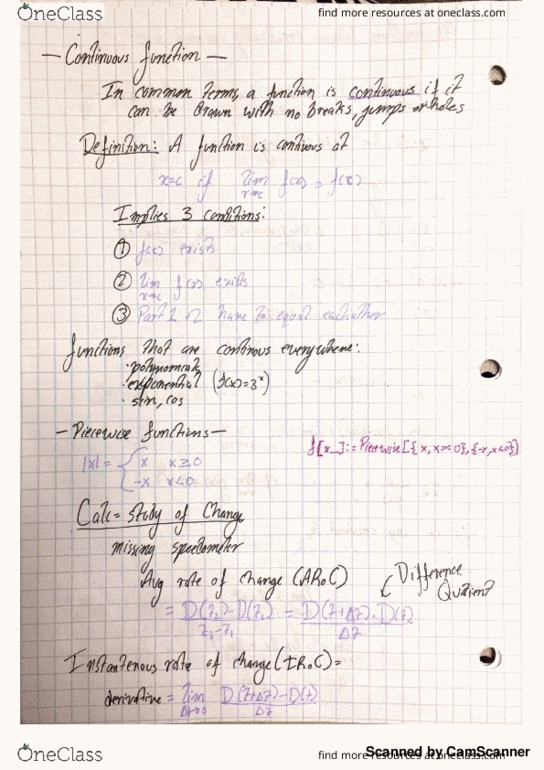 OneClass
find more resources at oneclass.com
- Continuous function -
In common terms, a function is continuous if it
can be drawn with no breaks, jumps or holes
Definition: A function is continous at
x=c if lim x→c f(x) = f(x)
Implies 3 conditions:
① f(x) exists
② lim x→c f(x) exists
③ Part 1 & 2 have to equal eachother
functions that are continous everywhere:
· polynomials
· exponential (f(x)=3^x)
· sin, cos
- Piecewise functions -
f[x_]:= Piecewise[{x, x>=0},{-x, x<0}]
|x| = { x x≥0
-x x<0
Calc = study of Change
missing speedometer
Avg rate of change (ARoC)
Difference
Quotient
= D(t₂)-D(t₁) / t₂-t₁ = D(t+Δt)-D(t) / Δt
Instantenous rate of change (IRoC) =
derivative = lim Δt→0 D(t+Δt)-D(t) / Δt
OneClass
find more resources at oneclass.com
Scanned by CamScanner